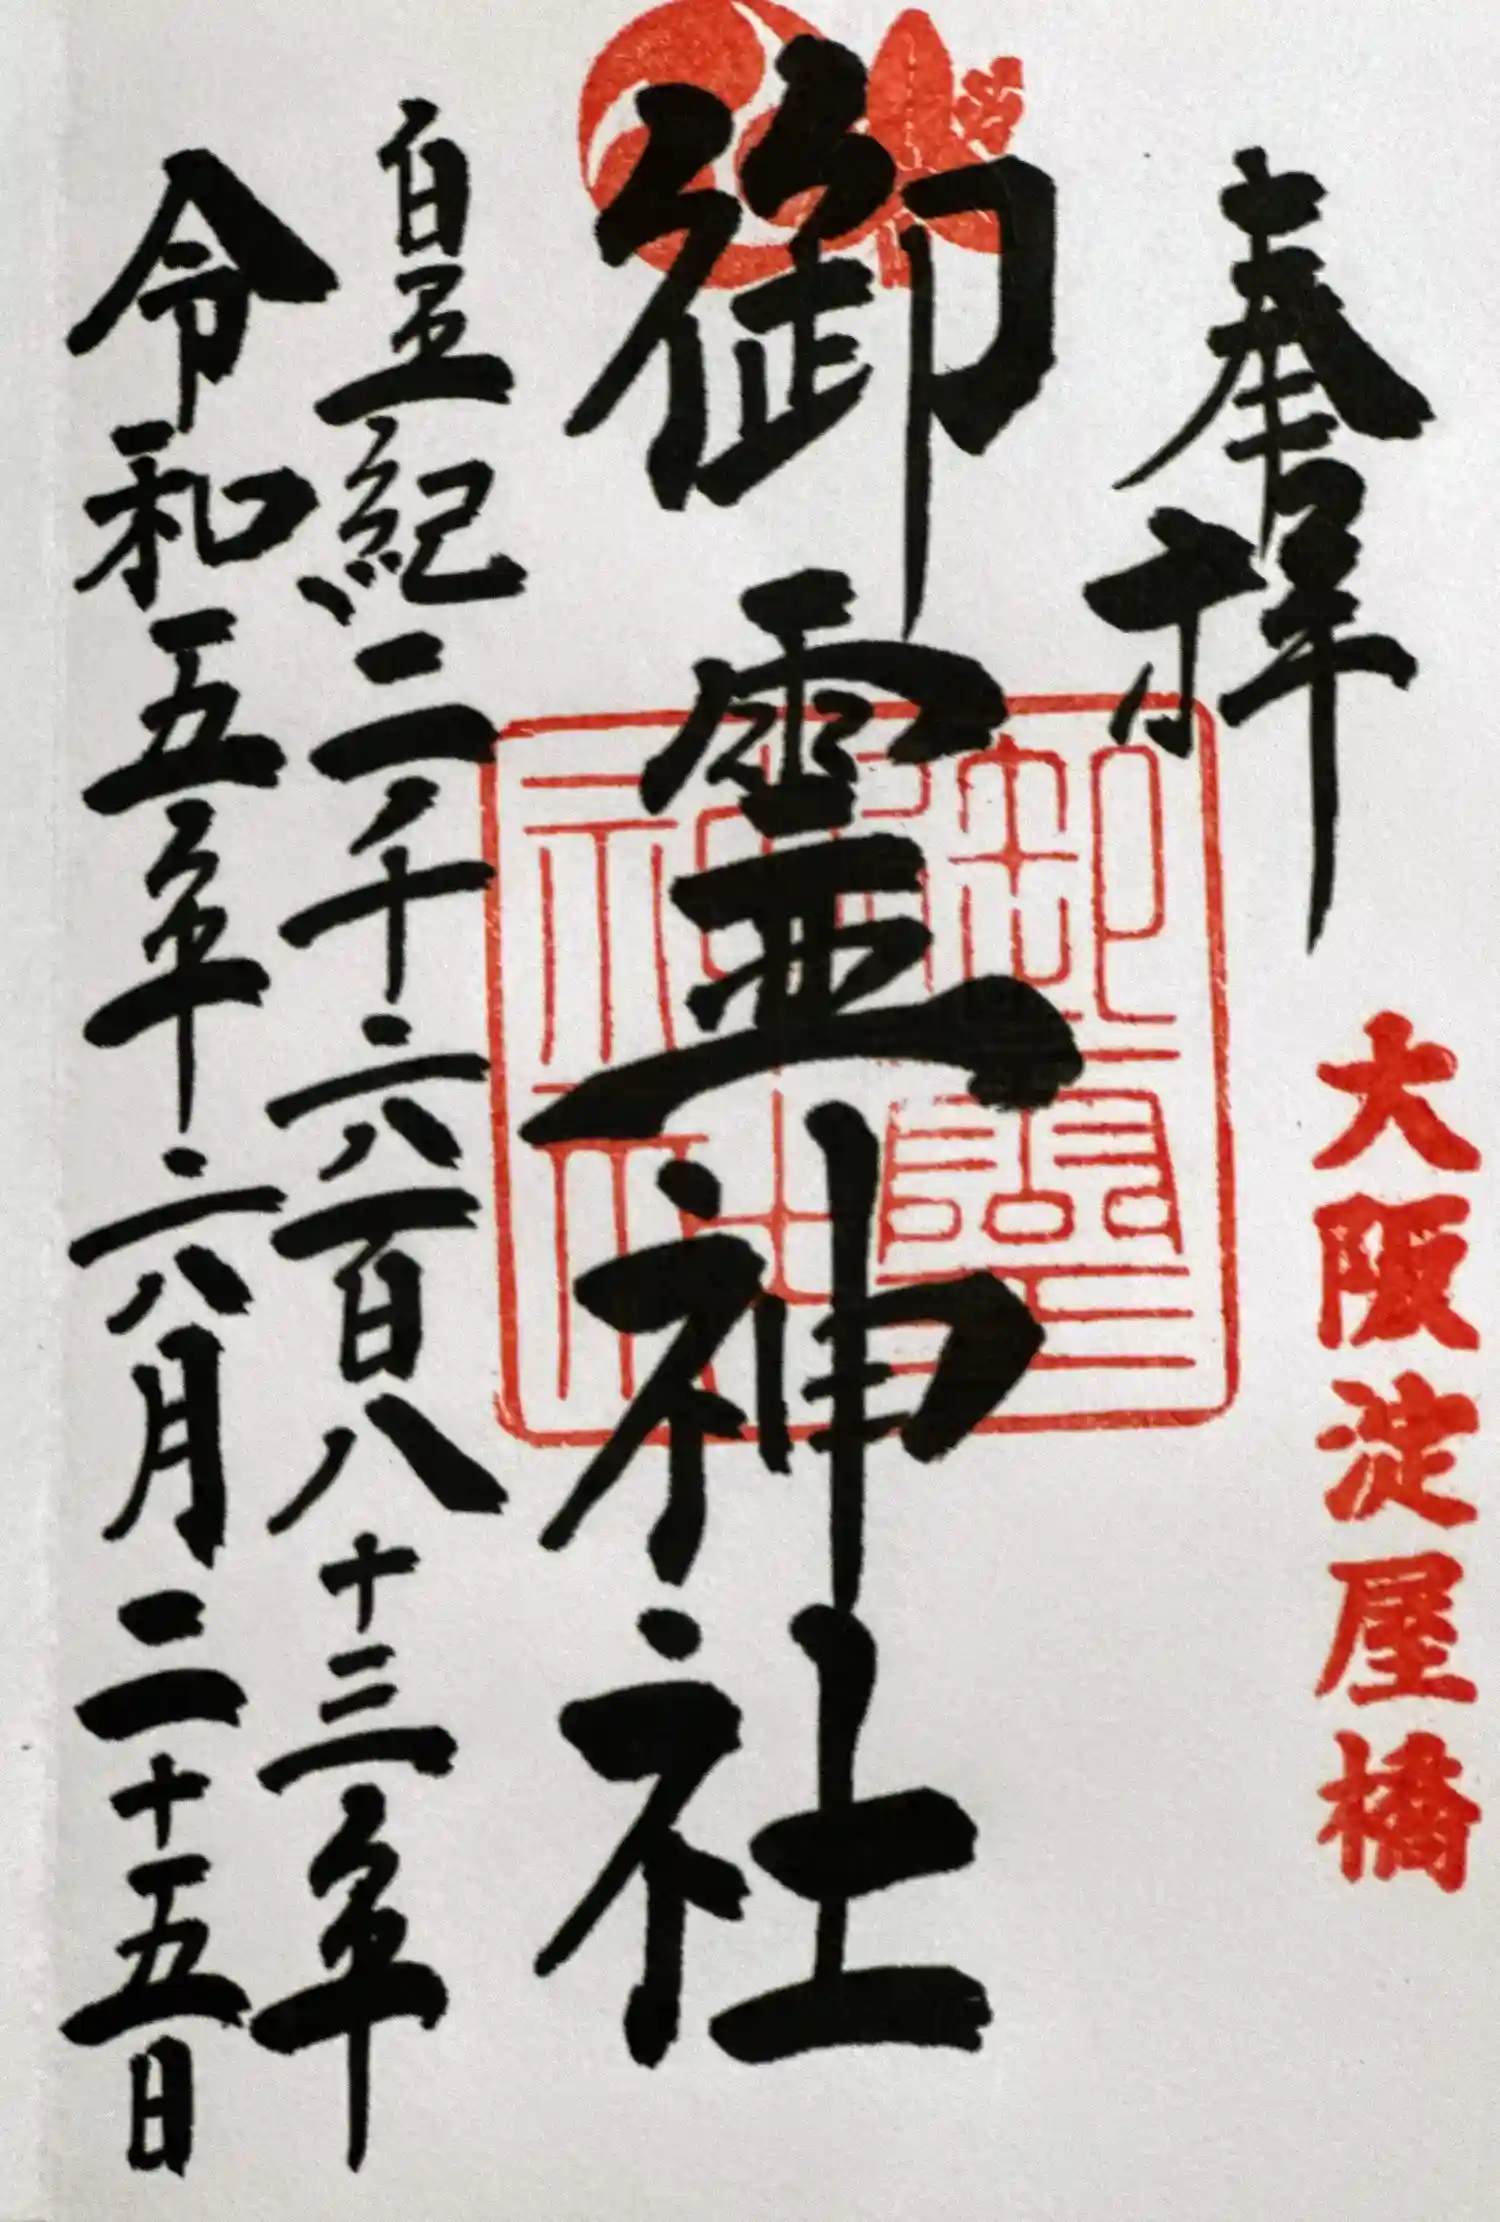 奉拝
大阪淀屋橋
御霊神社
御霊神社
皇紀二千六百八十三年
令和五年六月二十五日